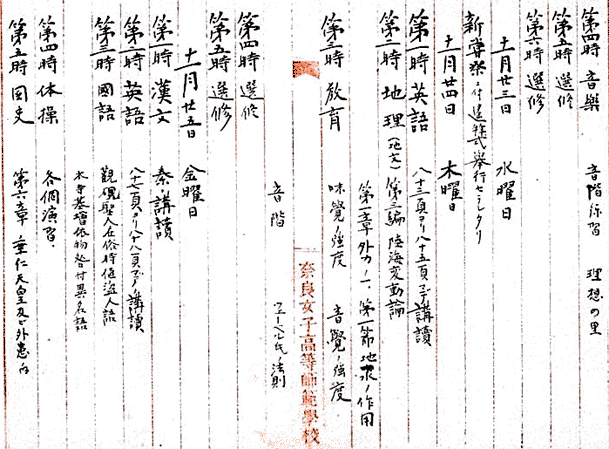 第四時 音樂 音階練習 理想の里
第五時 選修
第六時 選修
十一月廿三日 水曜日
新嘗祭ニ付 遥拝式挙行セラレタリ
十一月廿四日 木曜日
第一時 英語 八十三頁ヨリ八十五頁マデ講讀
第二時 地理(地文) 第三編 陸海変動論
第二章 外力ノ一、第一節 地氷ノ作用
第三時 教育 味覺ノ強度 音覺ノ強度
奈良女子高等師範學校
音階 ウェーベル氏ノ法則
第四時 選修
第五時 選修
十一月廿五日 金曜日
第一時 漢文 秦 講讀
第二時 英語 八十七頁ヨリ八十八頁マデ講讀
第三時 國語 觀硯聖人在俗時値盗人語
基増依物咎付異名語
第四時 体操 各個演習.
第五時 国史 第六章 垂仁天皇及ビ外患